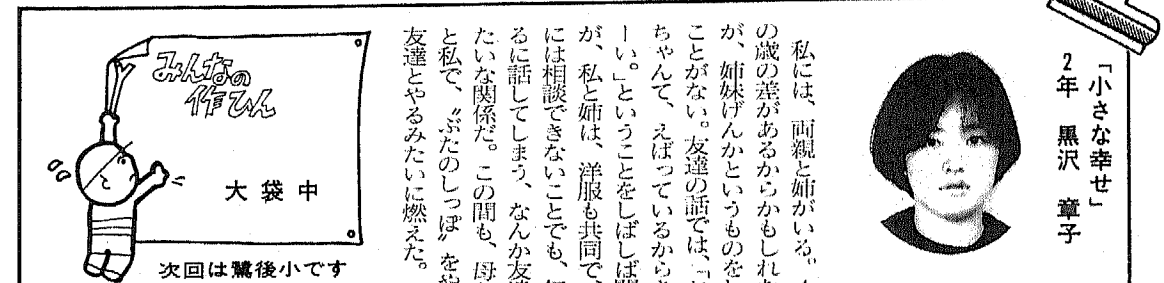 「小さな幸せ」
2年　黒沢　章子
私には、両親と姉がいる。
の歳の差があるからかもしれ
が、姉妹げんかというものを
ことがない。友達の話では、「
ちゃんて、えばっているから
ーい。」ということをしばしば
が、私と姉は、洋服も共同で、
には相談できないことでも、
るに話してしまう、なんか友達
たいな関係だ。この間も、母
と私で、〝ぶたのしっぽ〟を
友達とやるみたいに燃えた。
みんなの
作ひん
大袋中
次回は鷺後小です